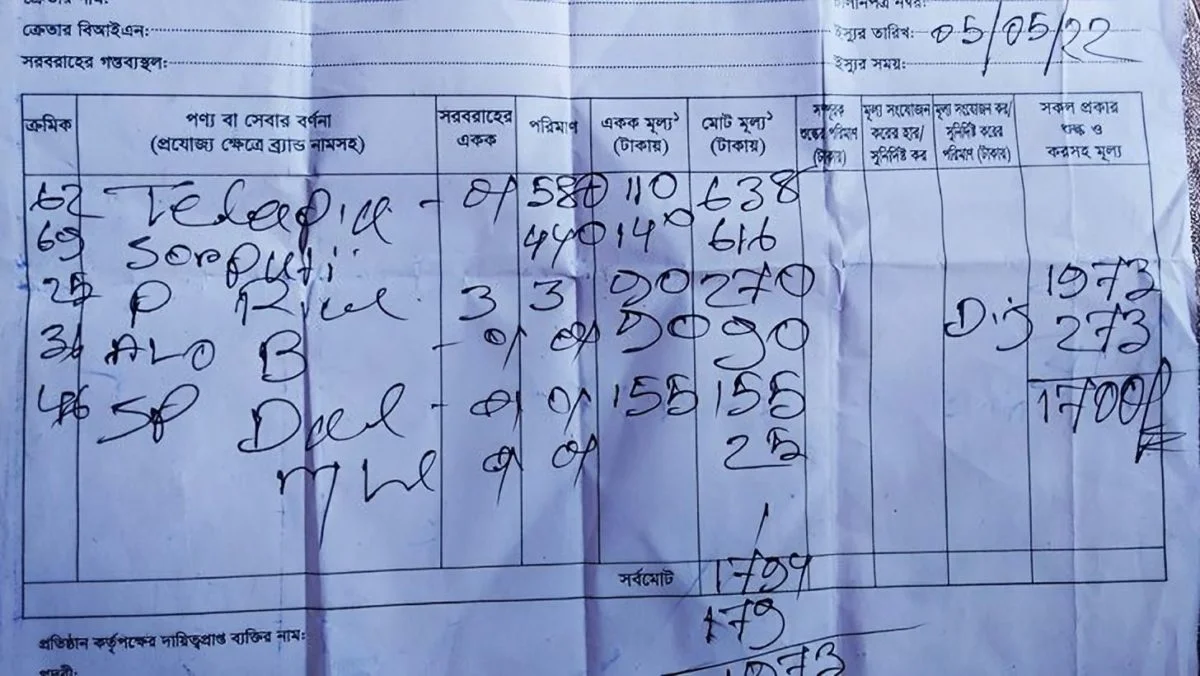 ক্রেতার নাম:
ক্রেতার বিআইএন:
ইস্যুর তারিখ: 05/05/22
সরবরাহের গন্তব্যস্থল:
ইস্যুর সময়:
ক্রমিক পণ্য বা সেবার বর্ণনা (প্রযোজ্য ক্ষেত্রে ব্র্যান্ড নামসহ) সরবরাহের একক পরিমাণ একক মূল্য১ (টাকায়) মোট মূল্য১ (টাকায়) সম্পূরক শুল্কের পরিমাণ (টাকায়) মূল্য সংযোজন করের হার/ সুনির্দিষ্ট কর মূল্য সংযোজন কর/ সুনির্দিষ্ট করের পরিমাণ (টাকায়) সকল প্রকার শুল্ক ও করসহ মূল্য
62 Telapia - 01 580 110 638
69 Sorputi 440 140 616
25 P Rice 3 3 90 270 1973
36 ALO B - 01 01 90 90 Dis 273
46 SP Dal - 01 01 155 155 1700/=
01 01 25
সর্বমোট 1794
179
1973
প্রতিষ্ঠান কর্তৃপক্ষের দায়িত্বপ্রাপ্ত ব্যক্তির নাম:
পদবী: